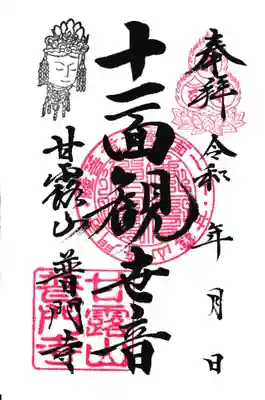 奉拝
令和　年　月　日
十一面観世音
甘露山
普門寺
甘露山
普門寺